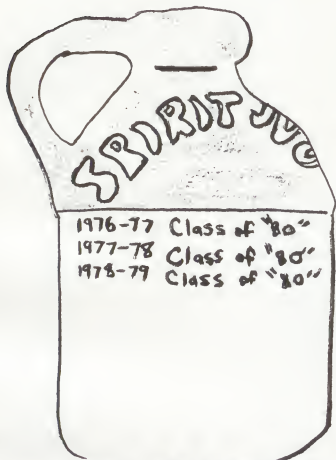 SPIRIT JUG
1976-77 Class of "80"
1977-78 Class of "80"
1978-79 Class of "80"